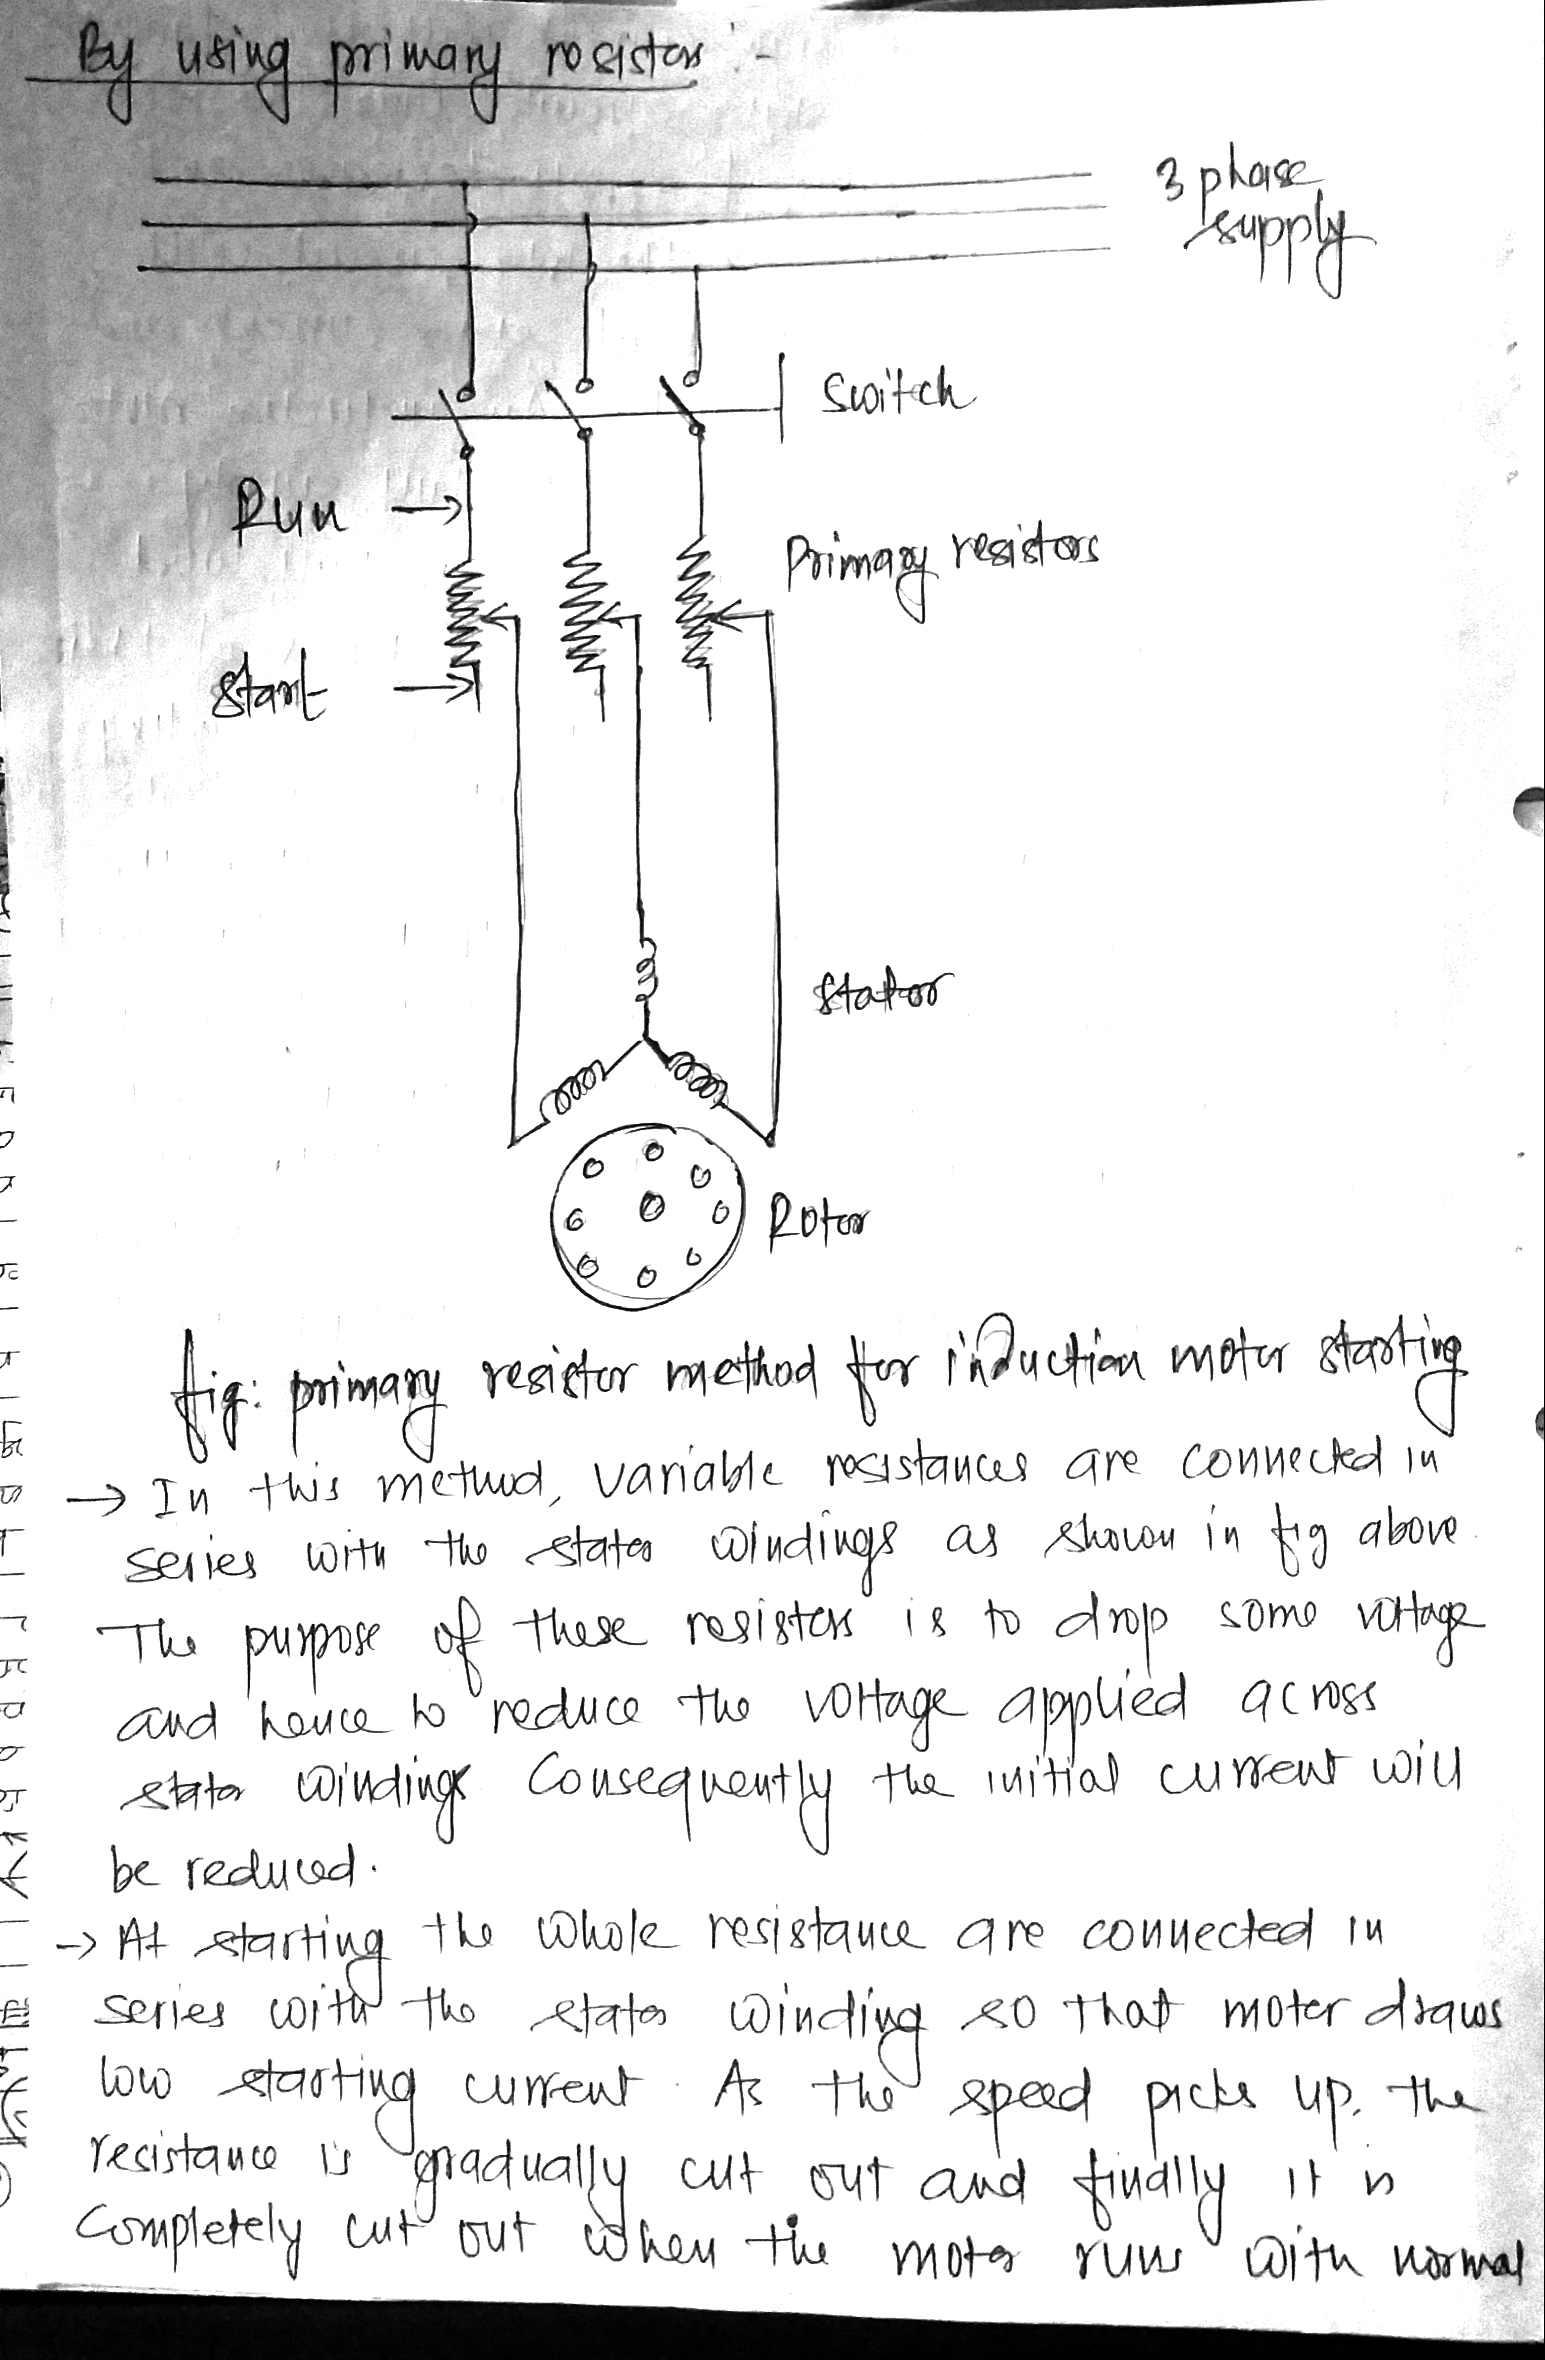 By using primary resistors :-
3 phase
supply
Switch
Run →
Primary resistors
Start →
Stator
Rotor
fig: primary resistor method for induction motor starting
→ In this method, variable resistances are connected in
series with the stator windings as shown in fig above.
The purpose of these resistors is to drop some voltage
and hence to reduce the voltage applied across
stator windings Consequently the initial current will
be reduced.
→ At starting the whole resistance are connected in
series with the stator winding so that motor draws
low starting current. As the speed picks up, the
resistance is gradually cut out and finally it is
Completely cut out when the motor runs with normal